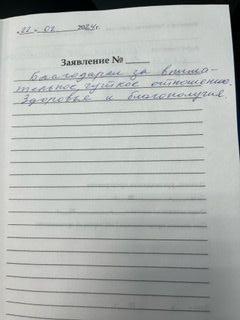 22 - 02 2024г.
Заявление № ____
Благодарим за внима-
тельное чуткое отношению.
Здоровья и благополучия